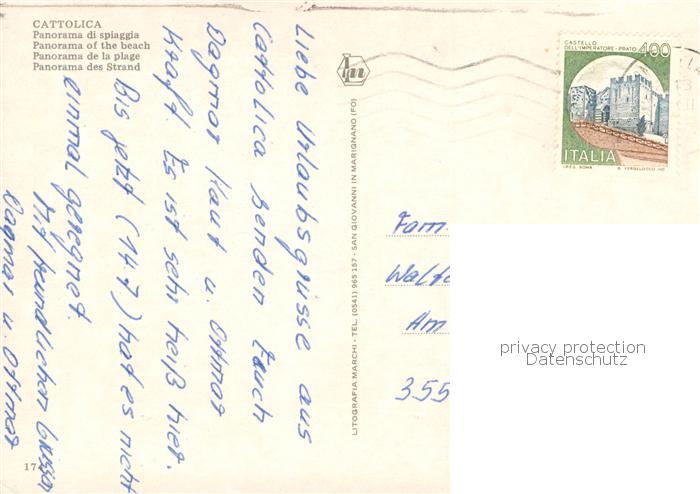 CATTOLICA
Panorama di spiaggia
Panorama of the beach
Panorama de la plage
Panorama des Strand
Liebe Urlaubsgrüsse aus
Cattolica senden Euch
Dagmar Kaut u. Ottmar
Kraft. Es ist sehr heiß hier.
Bis jetzt (14.7.) hat es nicht
einmal geregnet.
Mit freundlichen Grüssen
Dagmar u. Ottmar
17
LITOGRAFIA MARCHI - TEL. (0541) 965 157 - SAN GIOVANNI IN MARIGNANO (FO)
lm
CASTELLO
DELL'IMPERATORE - PRATO
400
ITALIA
I.P.Z.S. ROMA
Fam
Walt
Am
355
privacy protection
Datenschutz